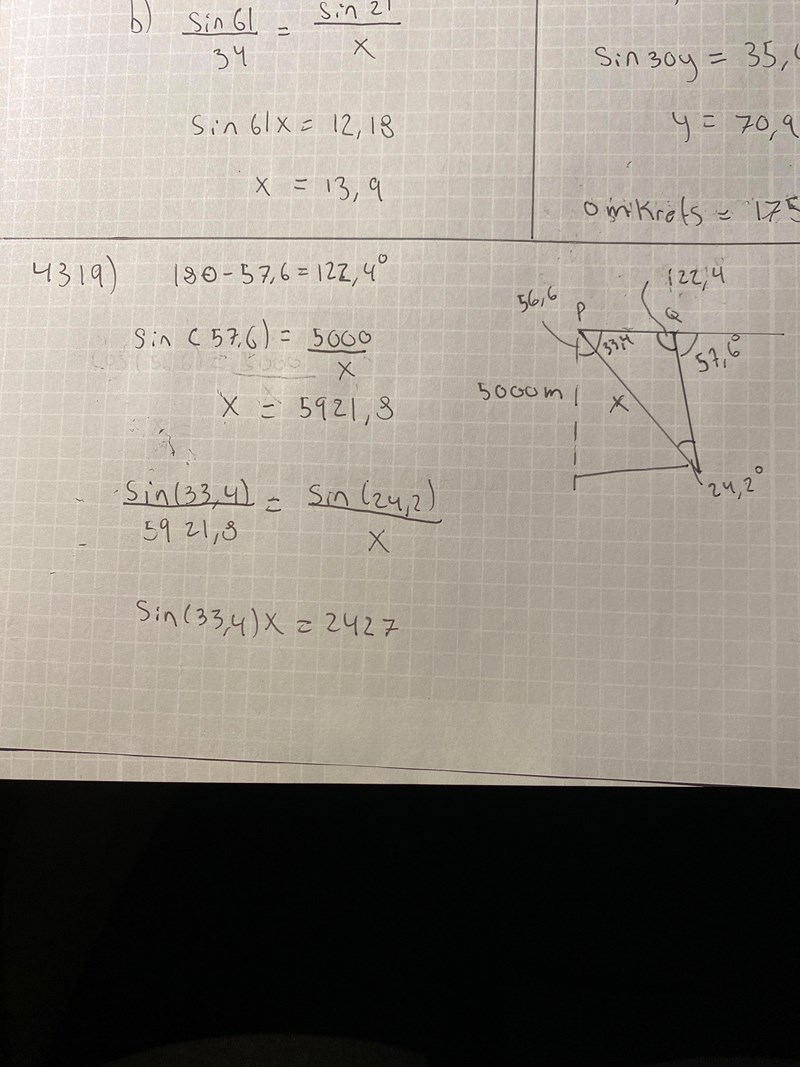 b) sin 61 / 34 = sin 21 / x
sin 61x = 12,18
x = 13,9
sin 30y = 35,
y = 70,9
omkrets = 175
4319) 180 - 57,6 = 122,4°
sin (57,6) = 5000 / x
x = 5921,8
sin(33,4) / 5921,8 = sin(24,2) / x
sin(33,4)x = 2427
56,6
P
Q
122,4
33,4
57,6°
5000m
x
24,2°